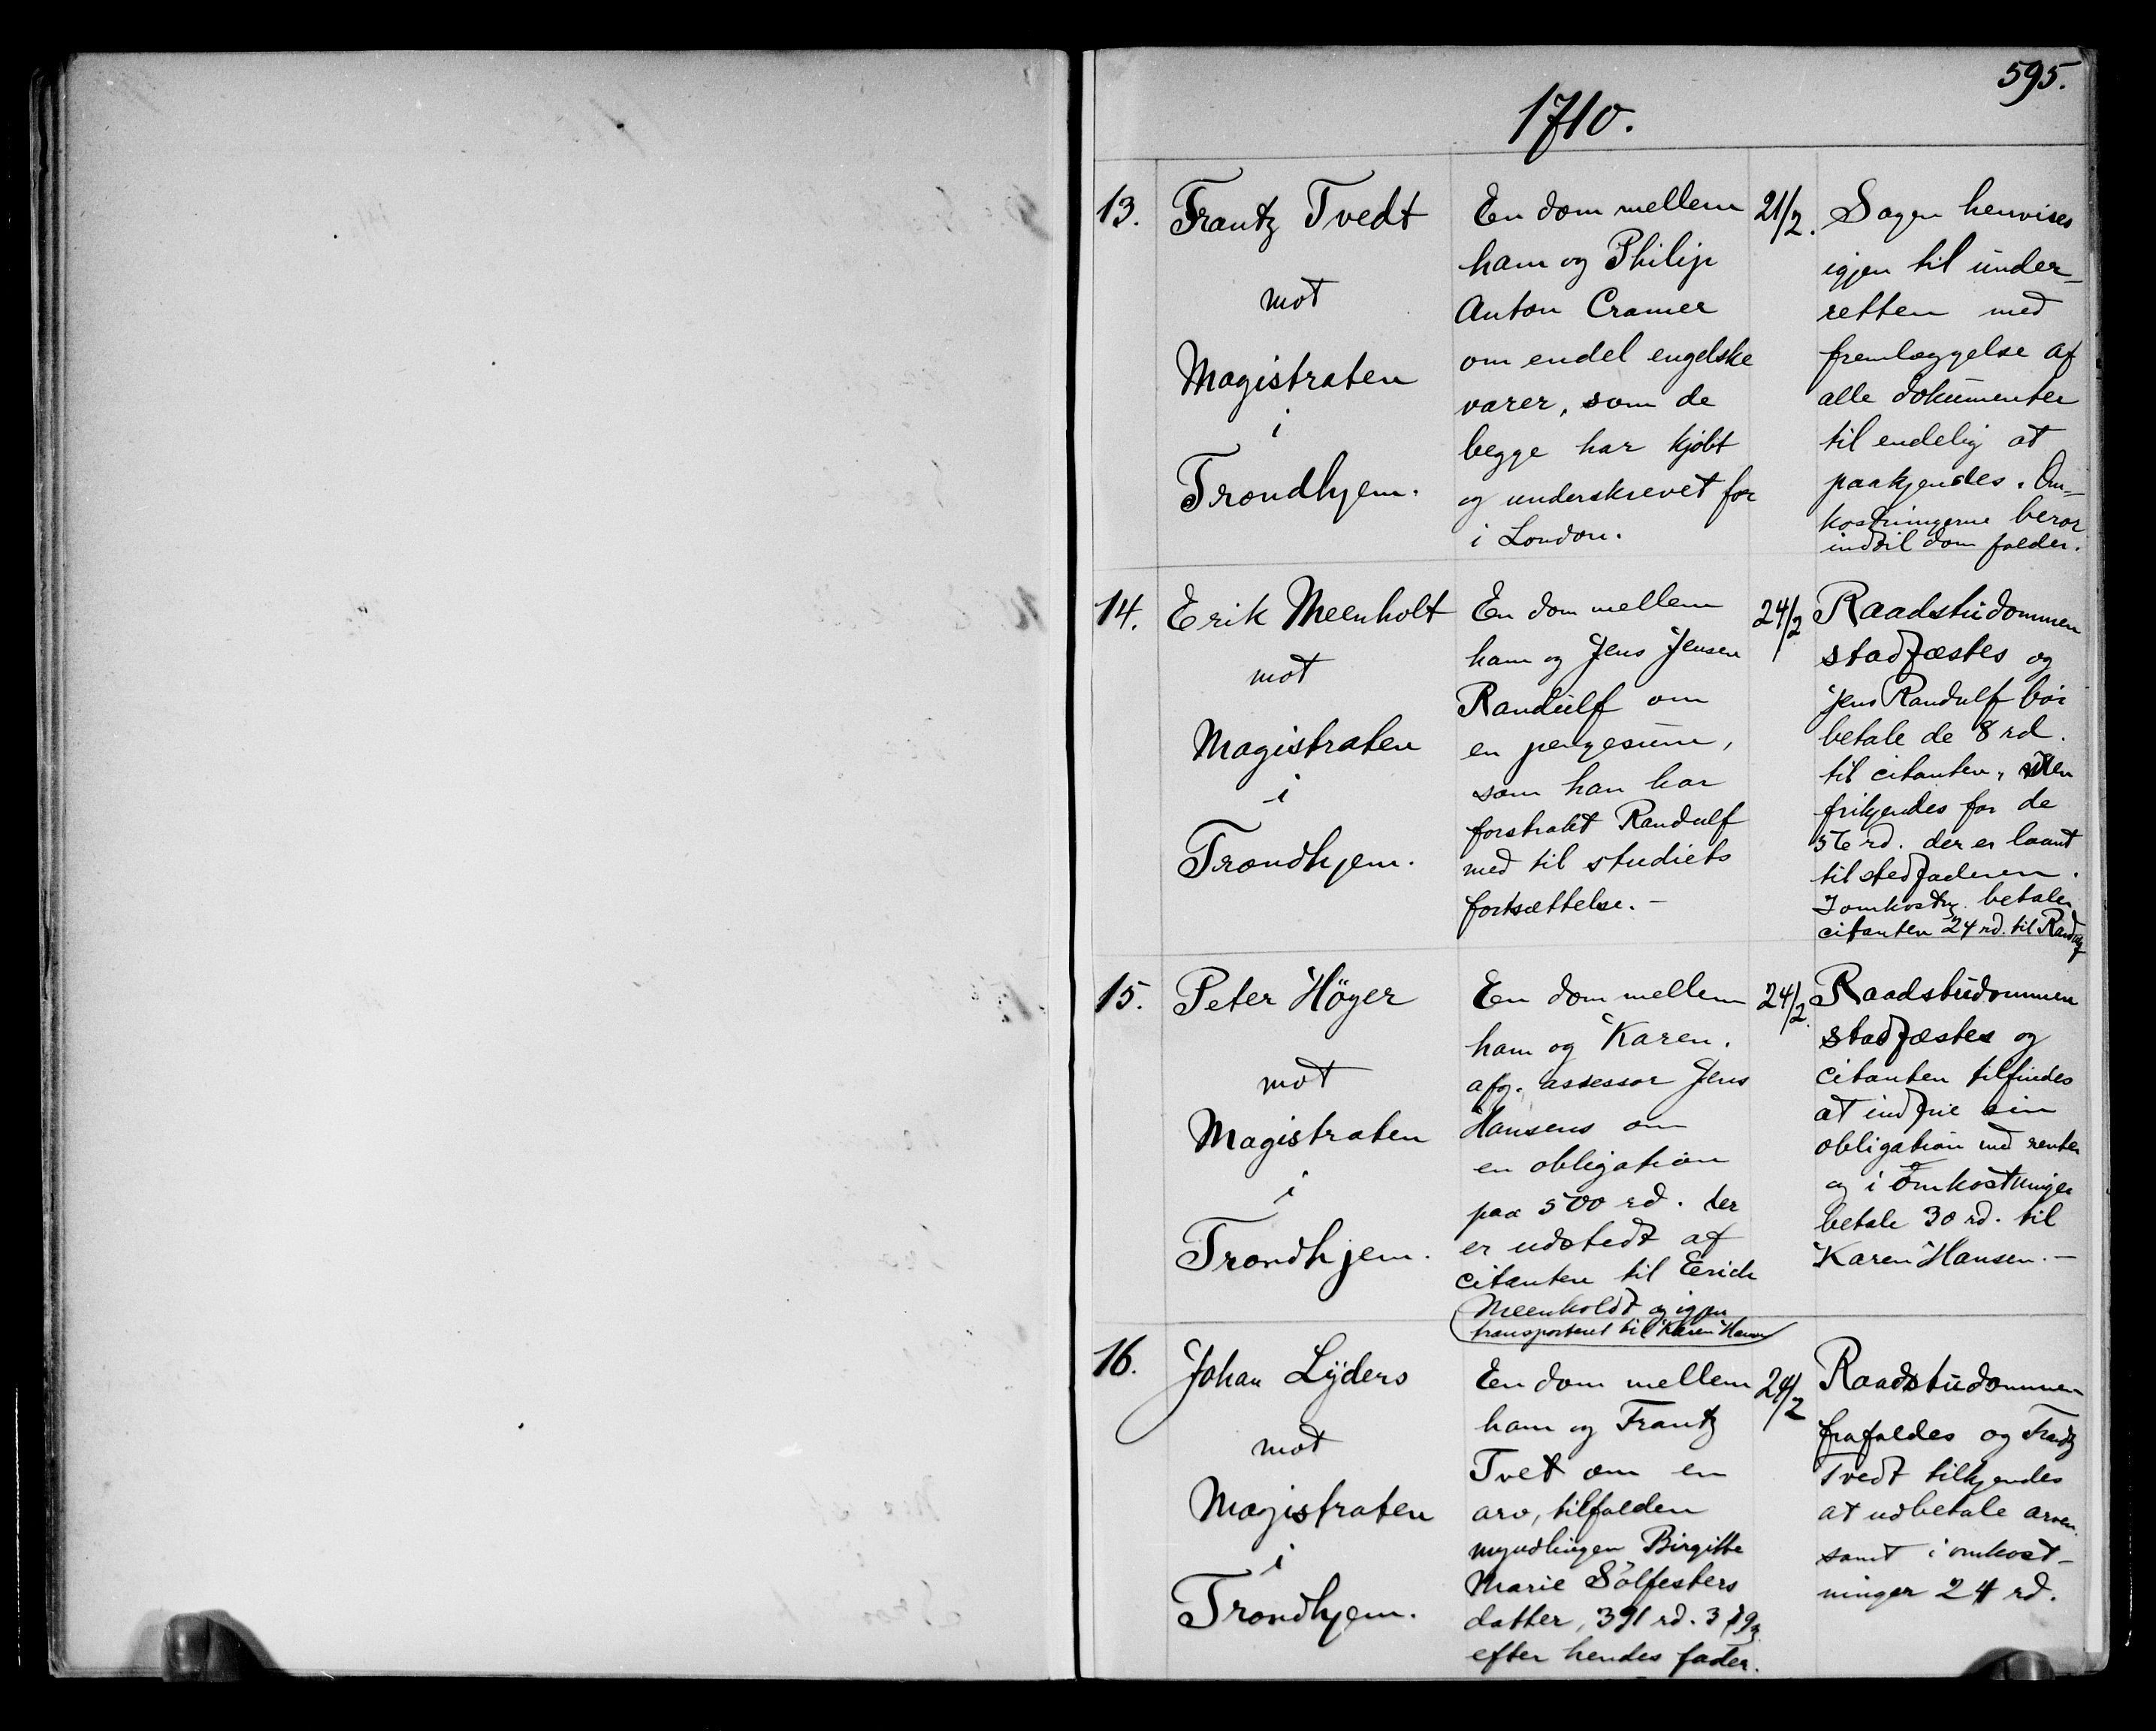 595.
1710.
13.
Frantz Tvedt
mot
Magistraten
i
Trondhjem.
En dom mellem
ham og Philip
Anton Cramer
om endel engelske
varer, som de
begge har kjøbt
og underskrevet for
i London.
21/2.
Sagen henvises
igjen til under-
retten med
fremlæggelse af
alle dokumenter
til endelig at
paakjendes. Om-
kostningerne beror
indtil dom falder.
14.
Erik Meenholt
mot
Magistraten
i
Trondhjem.
En dom mellem
ham og Jens Jensen
Randulf om
en pengesum,
som han har
forstrakt Randulf
med til studiets
fortsættelse. -
24/2
Raadstudommen
stadfæstes og
Jens Randulf bør
betale de 8 rd.
til citanten, men
frikjendes for de
56 rd. der er laant
til stedfaderen.
I omkostng. betaler
citanten 24 rd. til Randulf
15.
Peter Höyer
mot
Magistraten
i
Trondhjem.
En dom mellem
ham og Karen,
afg. assessor Jens
Hansens om
en obligation
paa 500 rd. der
er udstedt af
citanten til Erich
Meenholdt og igjen
transporteret til Karen Hansen
24/2.
Raadstudommen
stadfæstes og
citanten tilfindes
at indfrie sin
obligation med renter
og i omkostninger
betale 30 rd. til
Karen Hansen. -
16.
Johan Lÿders
mot
Magistraten
i
Trondhjem.
En dom mellem
ham og Frantz
Tvet om en
arv, tilfalden
myndlingen Birgitte
Marie Sölfesters
datter, 391 rd. 3
efter hendes fader.
24/2
Raadstudommen
frafaldes og Frantz
Tvedt tilkjendes
at udbetale arven
samt i omkost-
ninger 24 rd.